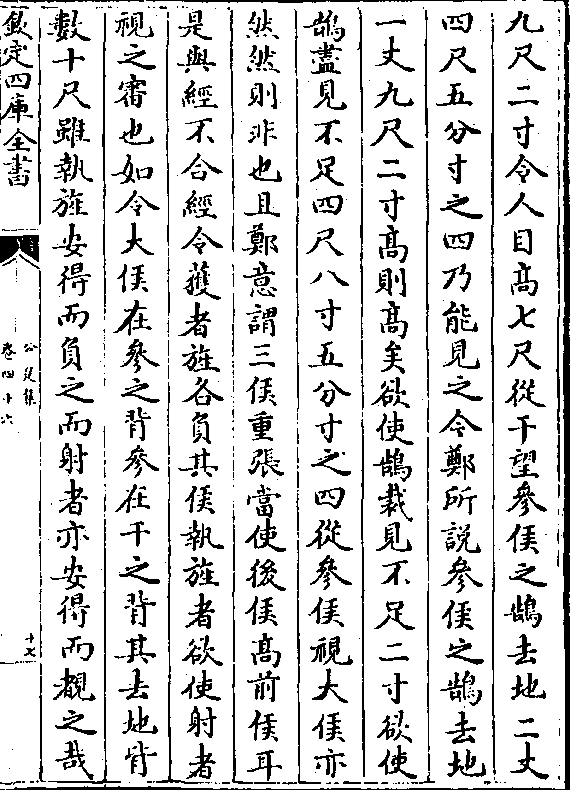 九尺二寸令人目髙七尺從干望參侯之鵠去地二丈
四尺五分寸之四乃能見之今鄭所説參侯之鵠去地
一丈九尺二寸髙則髙矣欲使鵠裁見不足二寸欲使
鵠盡見不足四尺八寸五分寸之四從參侯視大侯亦
然然則非也且鄭意謂三侯重張當使後侯髙前侯耳
是與經不合經令獲者旌各負其侯執旌者欲使射者
視之審也如令大侯在參之背參在干之背其去地皆
數十尺雖執旌安得而負之而射者亦安得而覩之哉
欽定四庫全書
公是集
卷四十六
十七